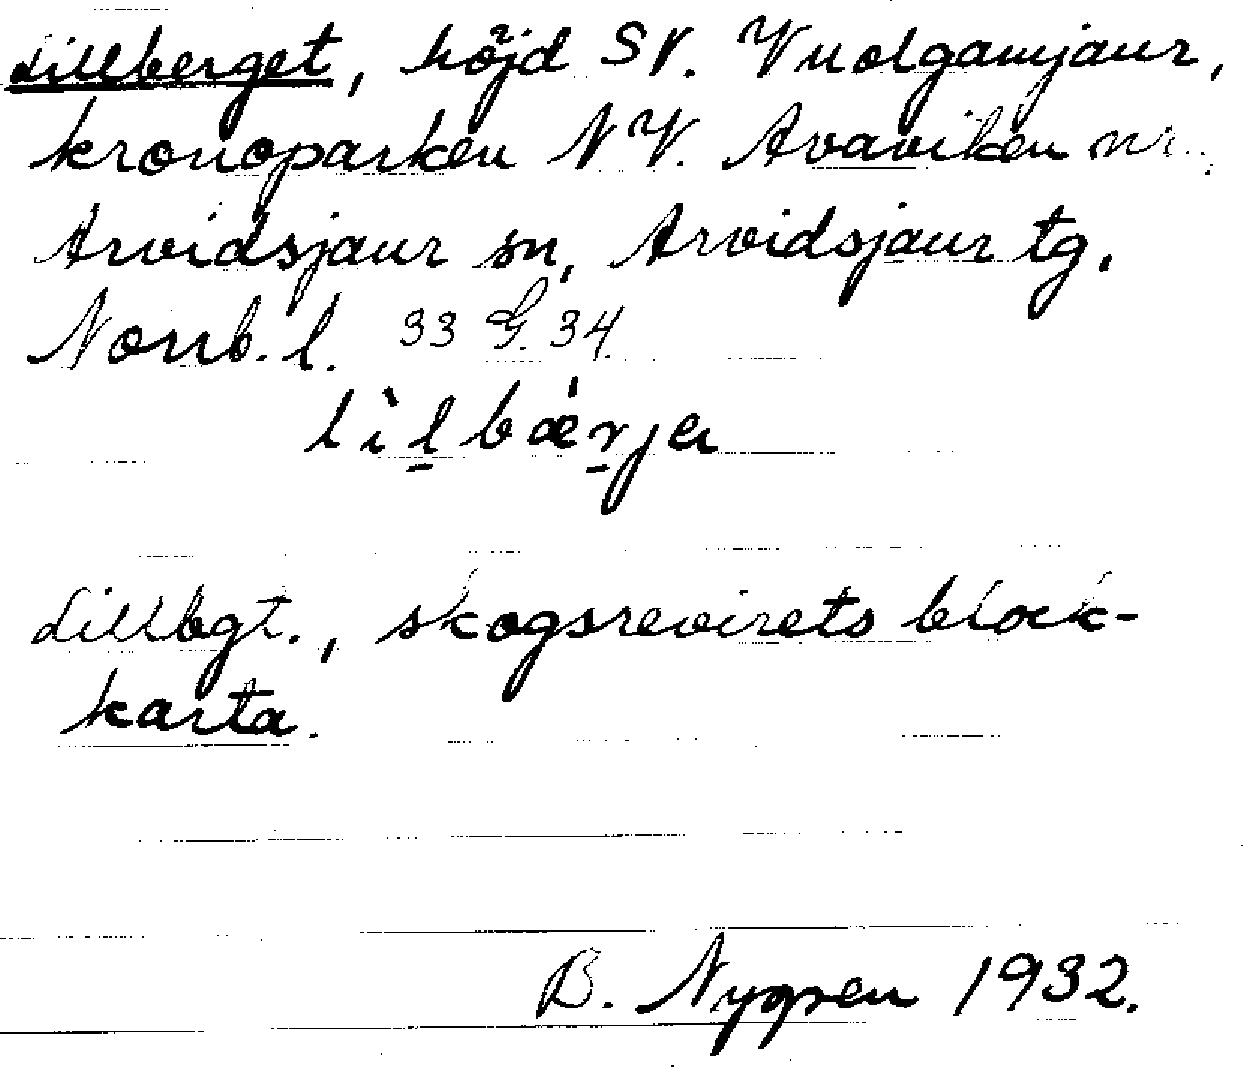 Lillberget, höjd SV. Vuolgamjaur,
kronoparken NV. Avaviken nr.,
Arvidsjaur sn, Arvidsjaur tg.
Norrb. l. 33 G. 34.
lìl̠bǽr̠ja
Lillbgt., skogsrevirets block-
karta.
B. Nygren 1932.